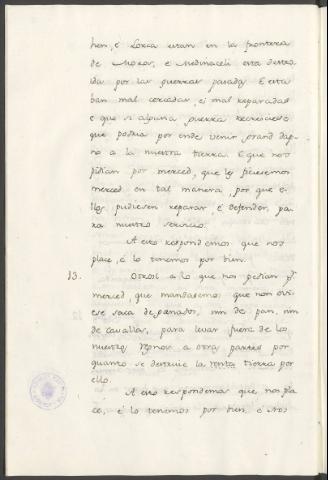 hen, é Lorca estan en la frontera
de Moros, é Medinaceli esta destro
ida por las guerras pasadas. E esta
ban mal cercadas, é mal reparadas
é que si alguna guerra recreciese
que podria por ende venir grand dap
no a la nuestra tierra. E que nos
pidian por merced, que les ficiesemos
merced en tal manera, por que e-
llos pudiesen reparar, é defender, pa-
ra nuestro servicio.
A esto respondemos que nos
place, é lo tenemos por bien.
13. Otrosi a lo que nos pedian pr
merced, que mandasemos que non ovi-
ese saca de ganados, nin de pan, nin
de cavallos, para levar fuera de los
nuestros Regnos a otras partes por
quanto se destruie la tierra por
ello.
A esto respondemos que nos pla
ce, é lo tenemos por bien, é Nos